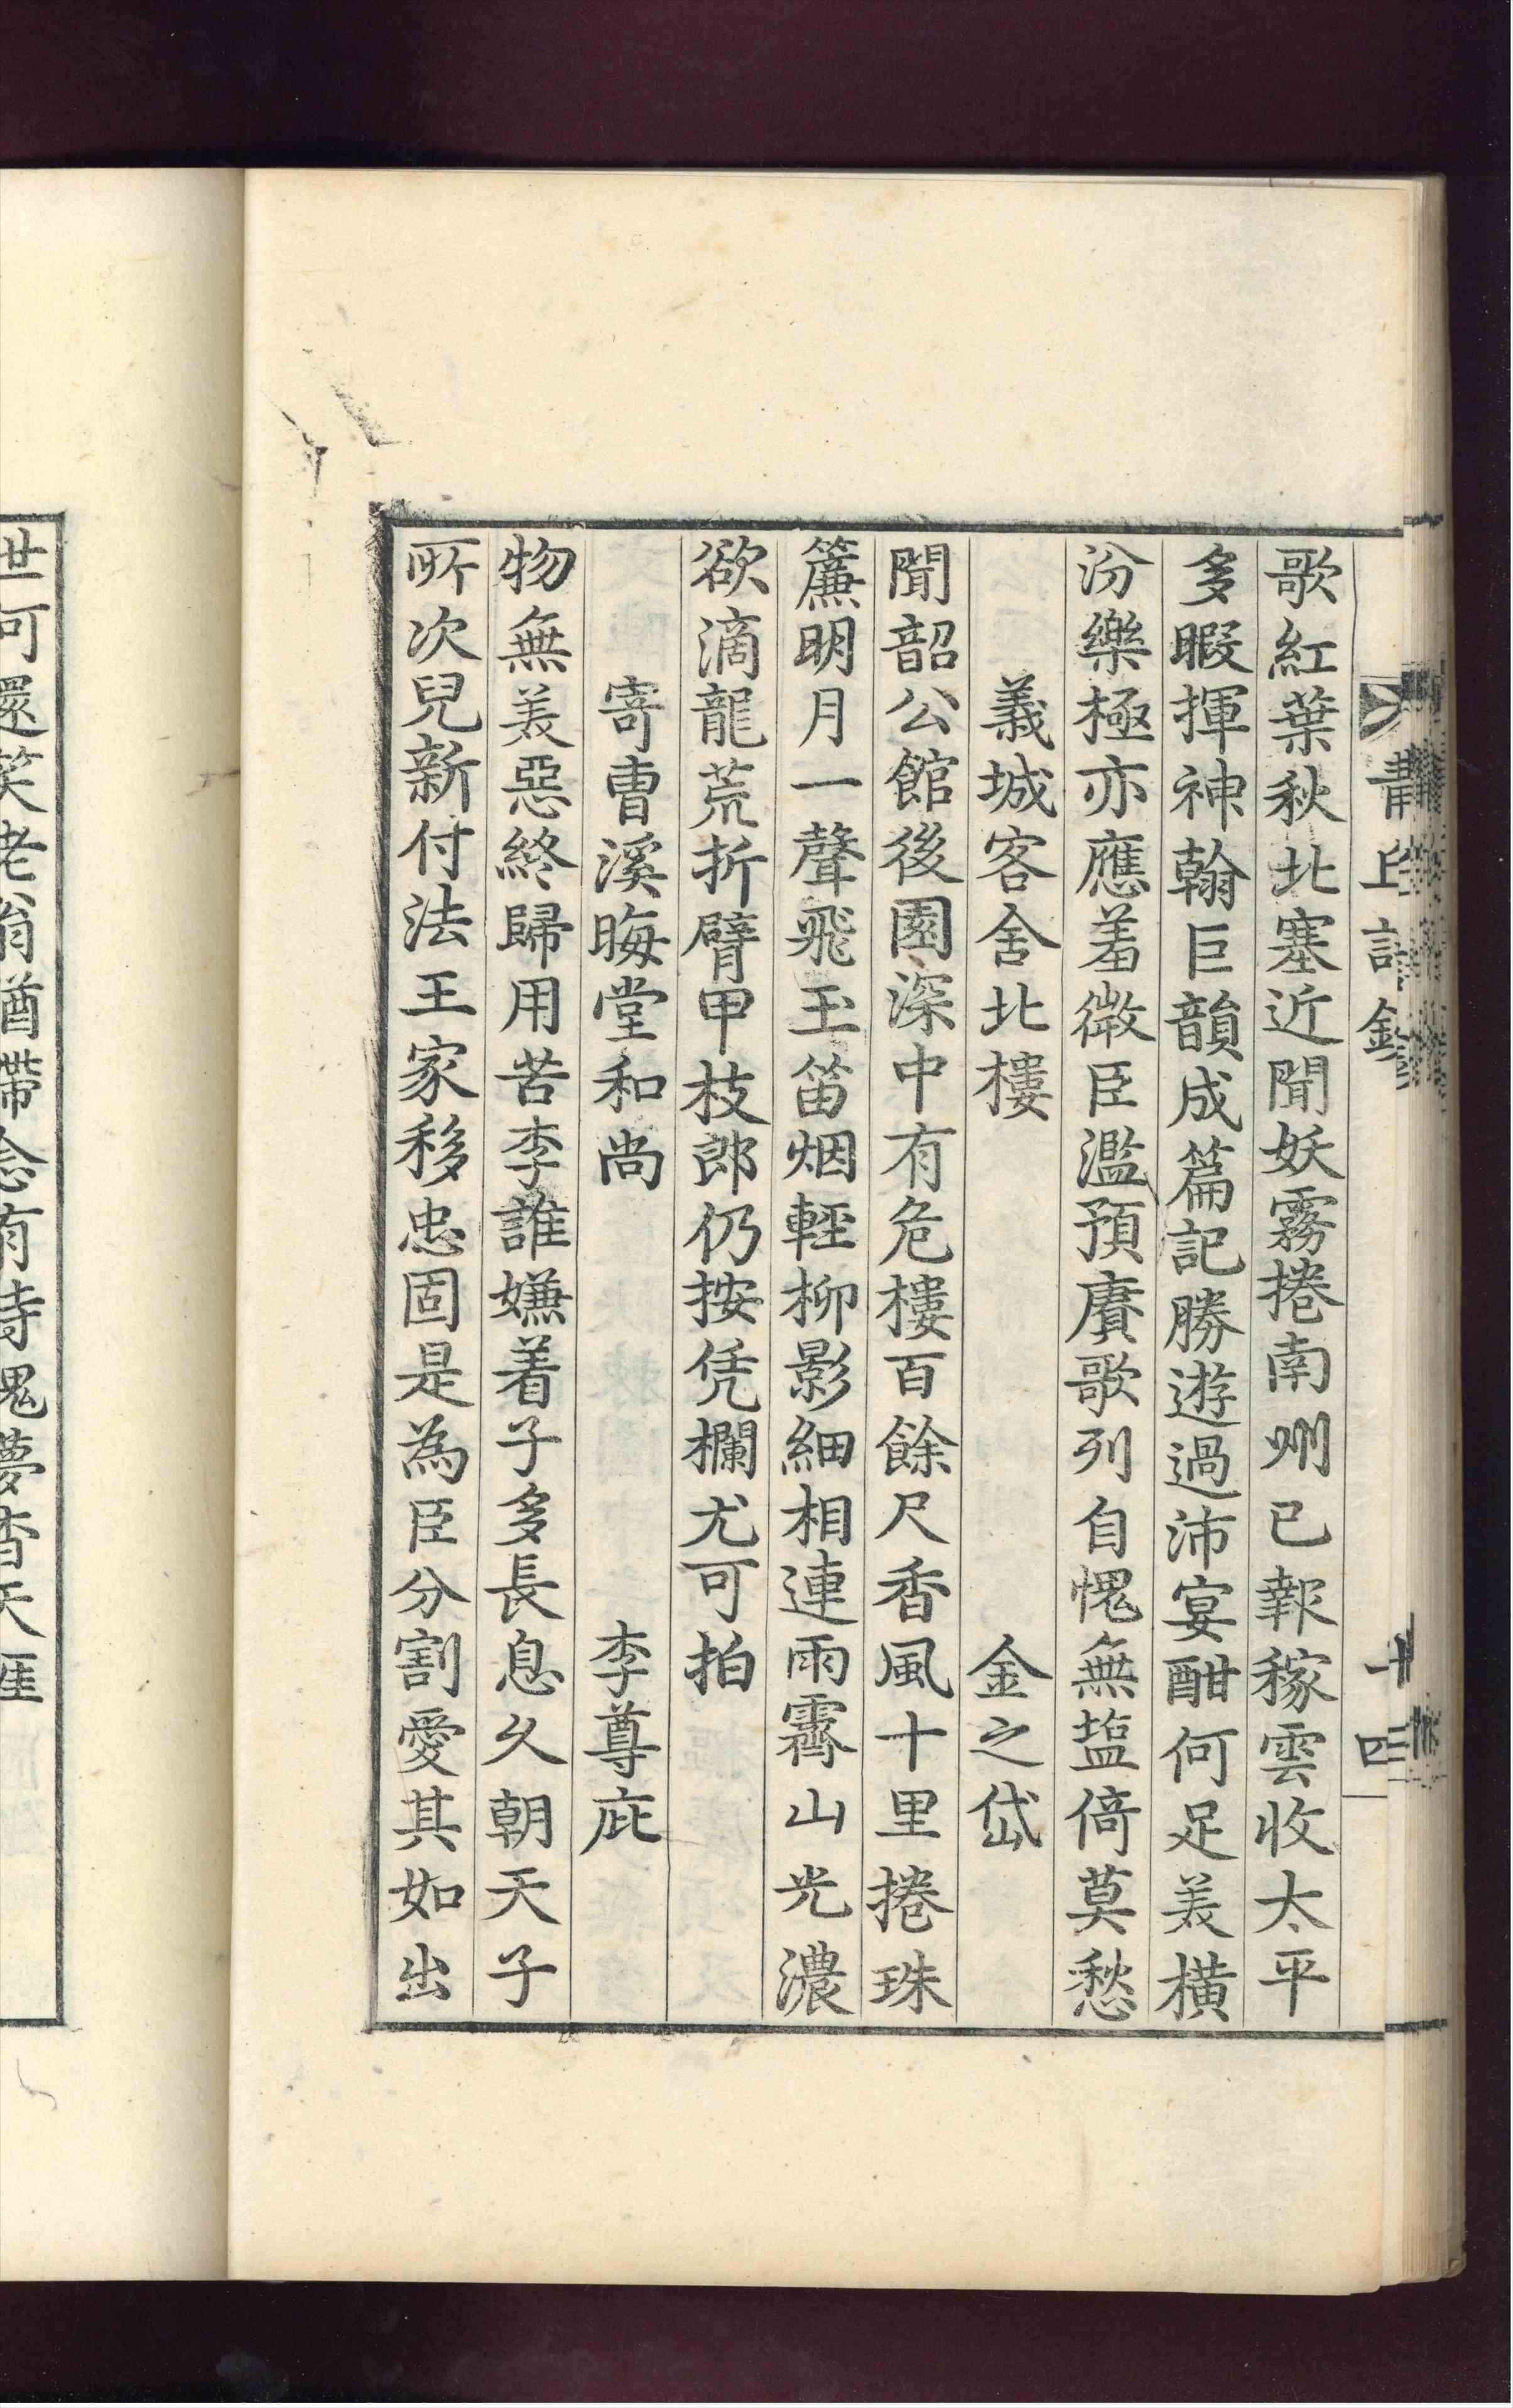 青丘詩鈔
十四
歌紅葉秋北塞近聞妖霧捲南州已報稼雲收太平
多暇揮神翰巨韻成篇記勝遊過沛宴酣何足美橫
汾樂極亦應羞微臣濫預賡歌列自愧無塩倚莫愁
義城客舍北樓 金之岱
聞韶公館後園深中有危樓百餘尺香風十里捲珠
簾明月一聲飛玉笛烟輕柳影細相連雨霽山光濃
欲滴龍荒折臂甲枝郎仍按凭欄尤可拍
寄曺溪晦堂和尚 李尊庇
物無美惡終歸用苦李誰嫌着子多長息久朝天子
所次兒新付法王家移忠固是為臣分割愛其如出
世可還笑老翁猶帶念有時魂夢杳天涯